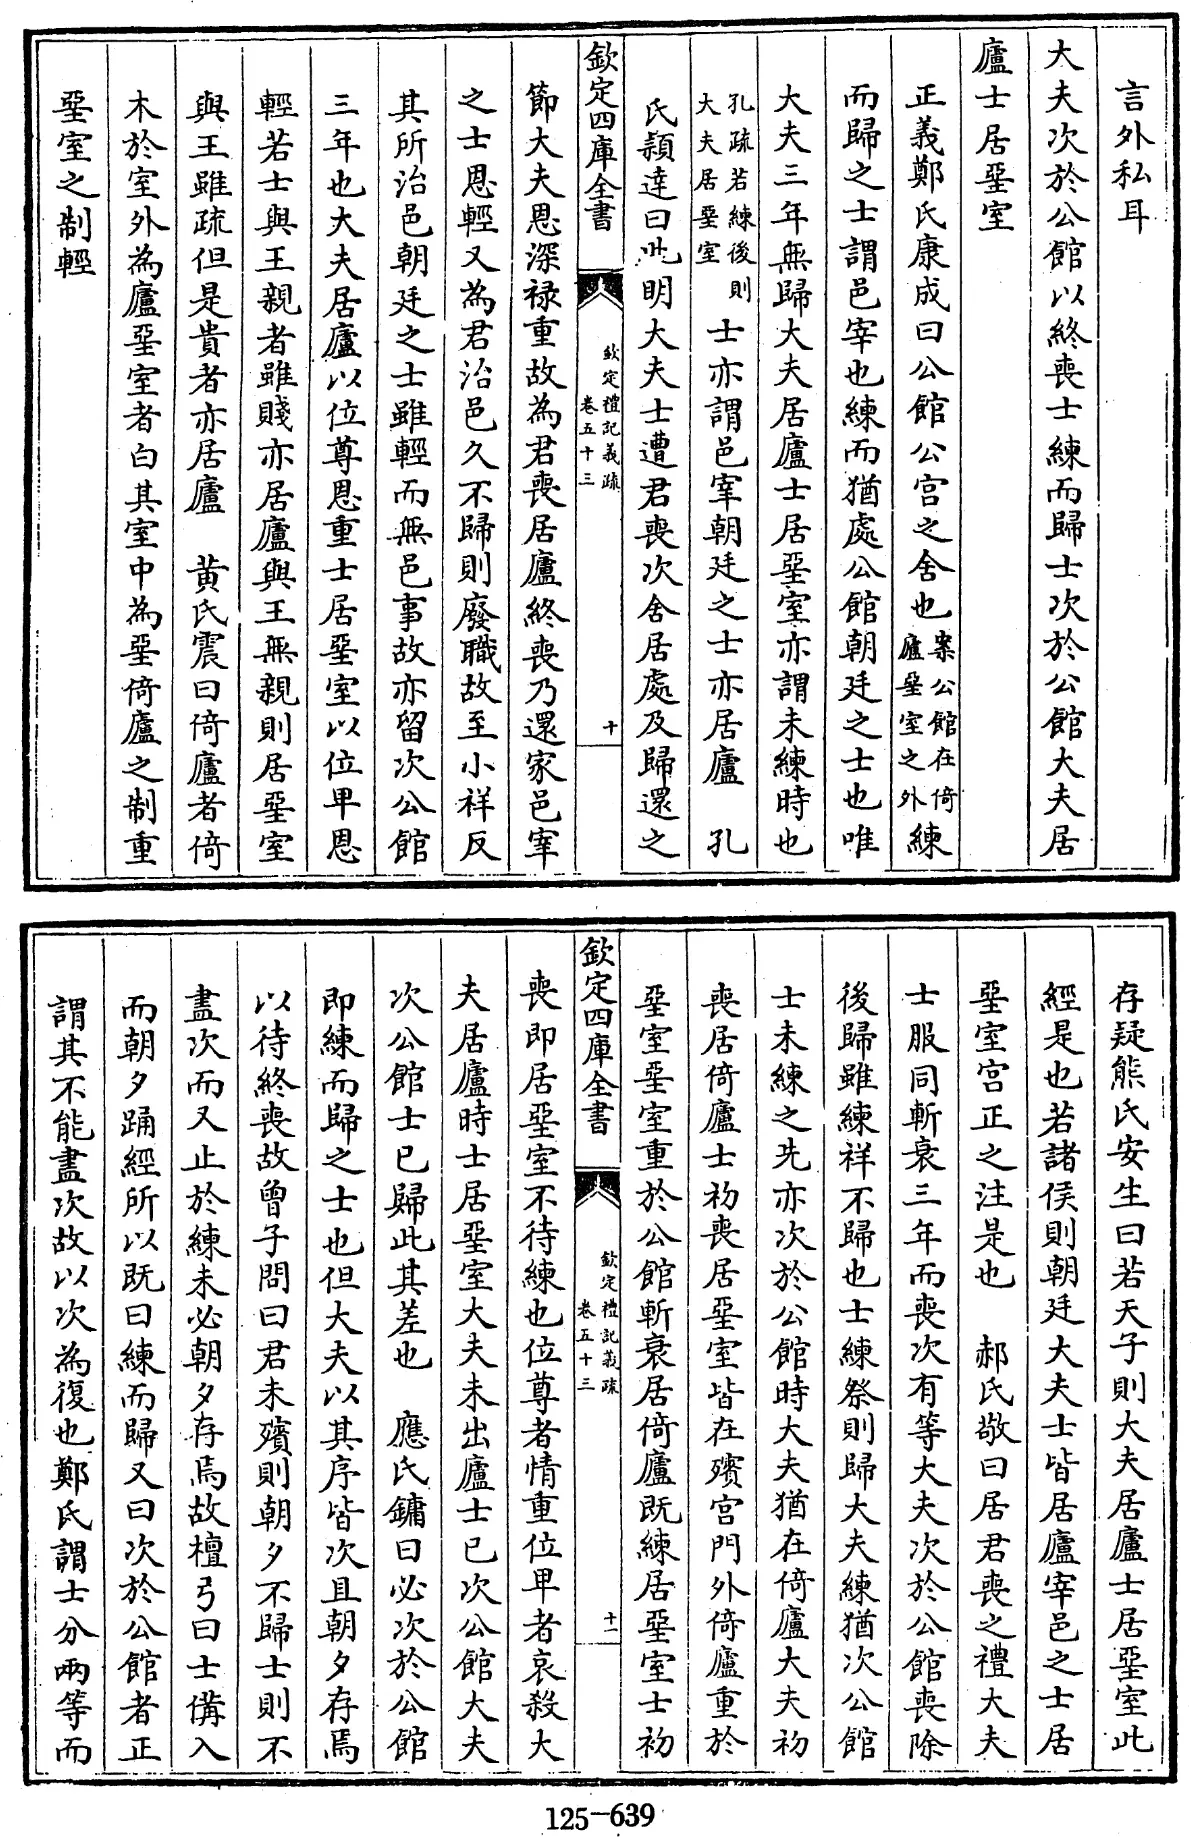 言外私耳
大夫次於公館以終喪士練而歸士次於公館大夫居
廬士居堊室
正義鄭氏康成曰公館公宮之舍也案公館在倚廬堊室之外練
而歸之士謂邑宰也練而猶處公館朝廷之士也唯
大夫三年無歸大夫居廬士居堊室亦謂未練時也
孔疏若練後則大夫居堊室士亦謂邑宰朝廷之士亦居廬　孔
氏頴達曰此明大夫士遭君喪次舍居處及歸還之
欽定四庫全書
欽定禮記義疏
卷五十三
十
節大夫恩深祿重故為君喪居廬終喪乃還家邑宰
之士恩輕又為君治邑久不歸則廢職故至小祥反
其所治邑朝廷之士雖輕而無邑事故亦留次公館
三年也大夫居廬以位尊恩重士居堊室以位卑恩
輕若士與王親者雖賤亦居廬與王無親則居堊室
與王雖疏但是貴者亦居廬　黃氏震曰倚廬者倚
木於室外為廬堊室者白其室中為堊倚廬之制重
堊室之制輕
存疑熊氏安生曰若天子則大夫居廬士居堊室此
經是也若諸侯則朝廷大夫士皆居廬宰邑之士居
堊室宮正之注是也　郝氏敬曰居君喪之禮大夫
士服同斬衰三年而喪次有等大夫次於公館喪除
後歸雖練祥不歸也士練祭則歸大夫練猶次公館
士未練之先亦次於公館時大夫猶在倚廬大夫初
喪居倚廬士初喪居堊室皆在殯宮門外倚廬重於
堊室堊室重於公館斬衰居倚廬既練居堊室士初
欽定四庫全書
欽定禮記義疏
卷五十三
十一
喪即居堊室不待練也位尊者情重位卑者哀殺大
夫居廬時士居堊室大夫未出廬士已次公館大夫
次公館士已歸此其差也　應氏鏞曰必次於公館
即練而歸之士也但大夫以其序皆次且朝夕存焉
以待終喪故曾子問曰君未殯則朝夕不歸士則不
盡次而又止於練未必朝夕存焉故檀弓曰士備入
而朝夕踊經所以既曰練而歸又曰次於公館者正
謂其不能盡次故以次為復也鄭氏謂士分兩等而
125-639